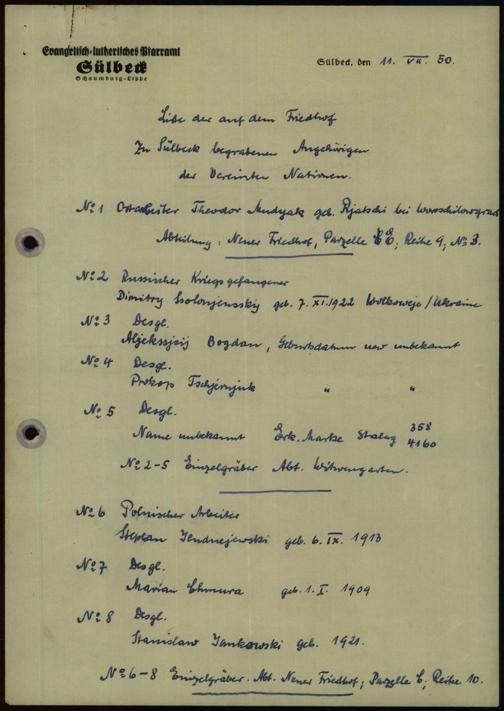 Evangelisch-lutherisches Pfarramt
Sülbeck
Schaumburg-Lippe
Sülbeck, den 11. VII. 50.
Liste der auf dem Friedhof
zu Sülbeck begrabenen Angehörigen
der Vereinten Nationen.
No 1 Ostarbeiter Theodor geb. Rjatschi bei Woroschilowgrad
Abteilung: Neuer Friedhof, Parzelle E; Reihe 9; No 3.
No 2 Russischer Kriegsgefangener
Dimitry geb. 7. XI. 1922 Wolkowejo / Ukraine
No 3 Desgl.
Aljekssjeij Bogdan, Geburtsdatum usw unbekannt
No 4 Desgl.
Prokop Tschjernjuk " "
No 5 Desgl.
Name unbekannt Erk. Marke Stalag 358
4160
No 2-5 Einzelgräber Abt. Witwengarten.
No 6 Polnischer Arbeiter
Stephan Jendrejewski geb. 6. IX. 1913
No 7 Desgl.
Marian Chmura geb. 1. I. 1909
No 8 Desgl.
Stanislaw Jankowski geb. 1921.
No 6-8 Einzelgräber. Abt. Neuer Friedhof; Parzelle C, Reihe 10.